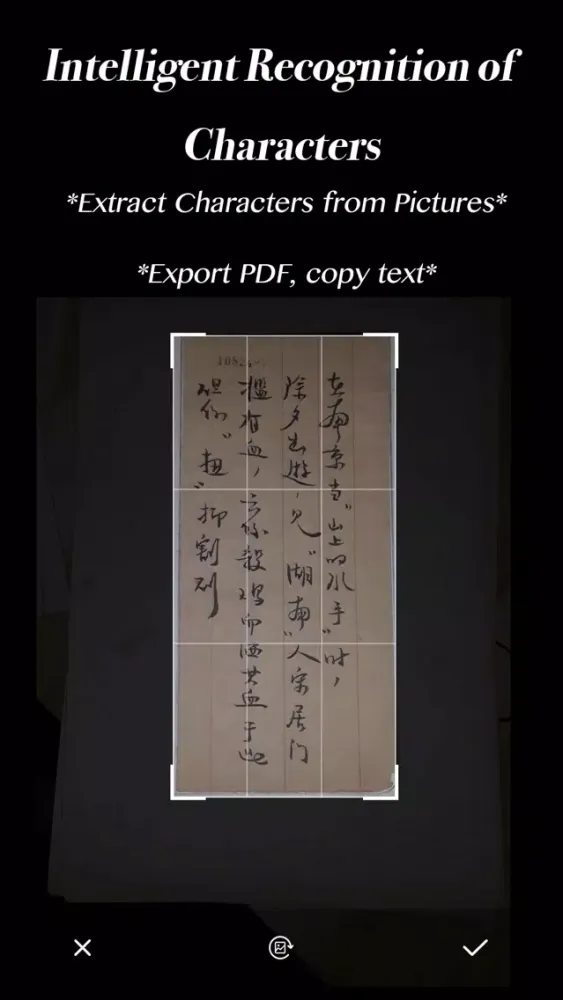 Intelligent Recognition of
Characters
*Extract Characters from Pictures*
*Export PDF, copy text*
在南京当“山上的水手”时，
除夕出遊，见“湖南”人家居门
槛有血，云係殺鸡而洒其血于此
“扭”抑割